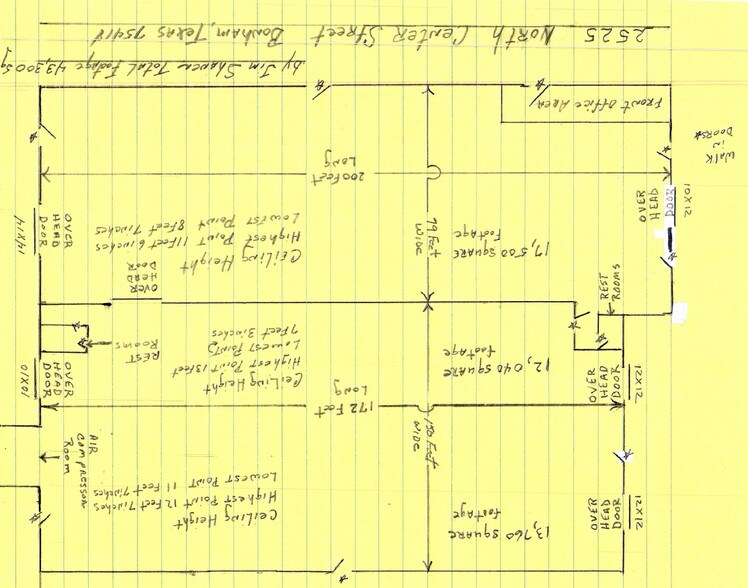 2525 NORTH CENTER STREET BONHAM, TEXAS 75418
by Jim Total Footage 43,300 Sq
FRONT OFFICE AREA
WALK
in
DOORS
200 FEET
Long
79 Feet
WIDE
17,500 SQUARE
Footage
Ceiling Height
Highest Point 11 Feet 6 inches
Lowest Point 8 Feet 7 inches
OVER
HEAD
DOOR
14X14
OVER
HEAD
DOOR
12X10
OVER
HEAD
DOOR
REST
ROOMS
REST
ROOMS
12,040 SQUARE
footage
Ceiling Height
Highest Point 15 feet
Lowest Points
7 Feet 3 inches
OVER
HEAD
DOOR
10X10
OVER
HEAD
DOOR
12X12
172 Feet
Long
150 Feet
WIDE
AIR
COMPRESSOR
Room
Ceiling Height
Highest Point 12 Feet 7 inches
Lowest Point 11 Feet 7 inches
13,760 SQUARE
footage
OVER
HEAD
DOOR
12X12